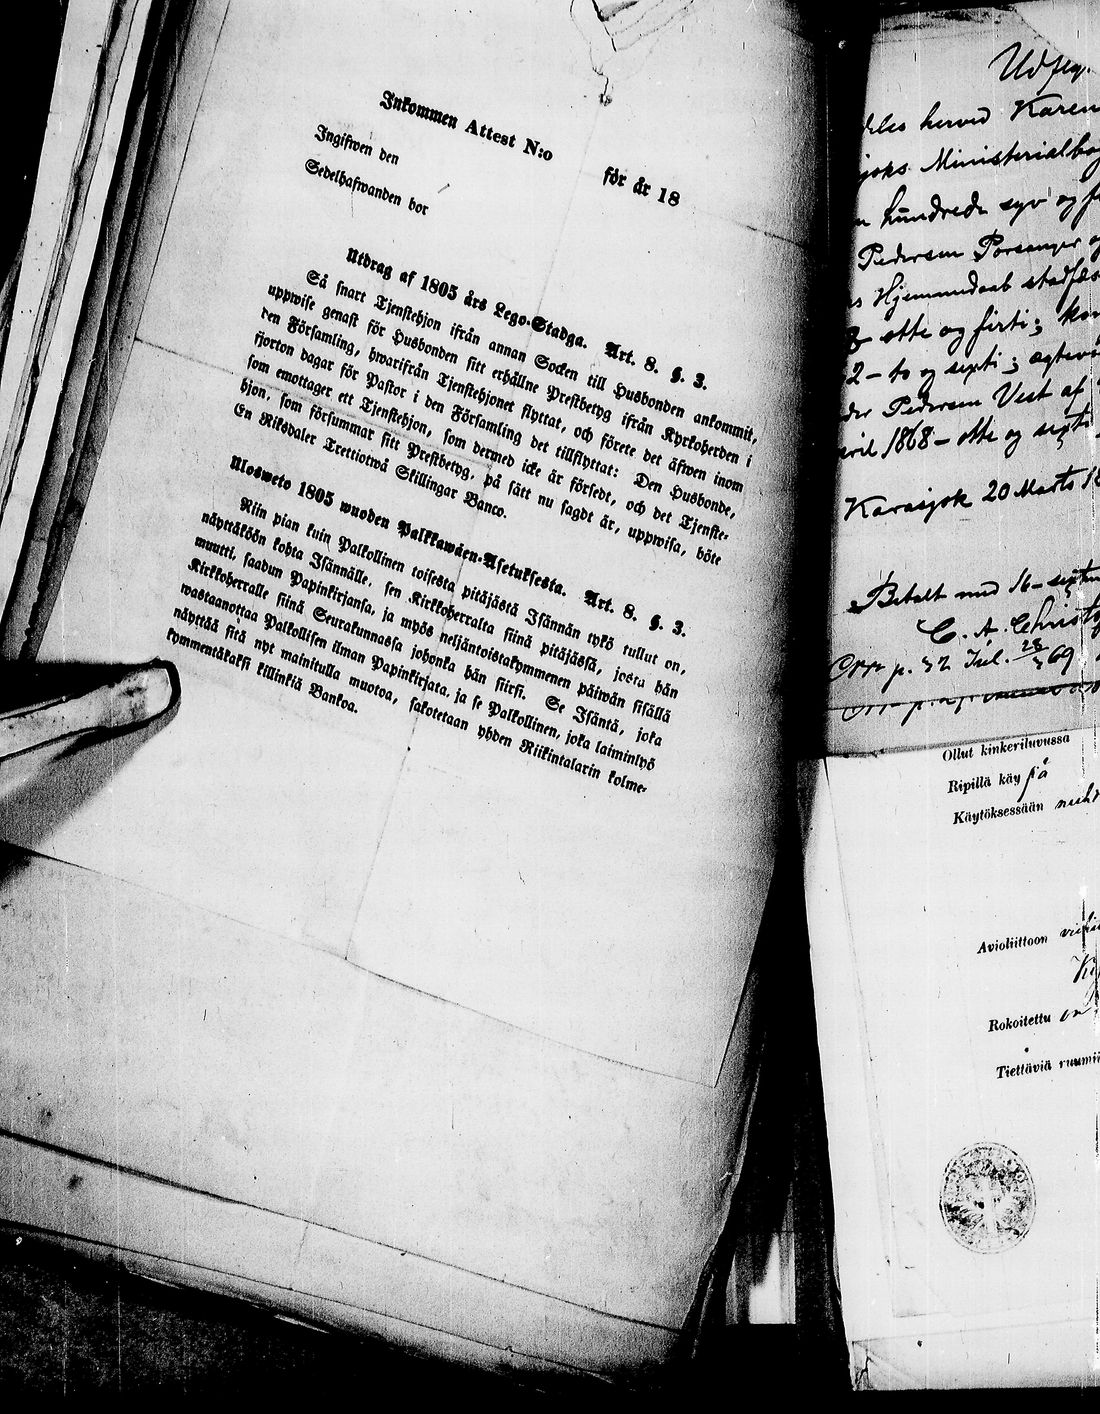 Inkommen Attest N:o för år 18
Ingifwen den
Sedelhafwanden bor
Utdrag af 1805 års Lego-Stadga. Art. 8. §. 3.
Så snart Tjenstehjon ifrån annan Socken till Husbonden ankommit,
uppwise genast för Husbonden sitt erhållne Prestbetyg ifrån Kyrkoherden i
den Församling, hwarifrån Tjenstehjonet flyttat, och förete det äfwen inom
fjorton dagar för Pastor i den Församling det tillflyttat: Den Husbonde,
som emottager ett Tjenstehjon, som dermed icke är försedt, och det Tjenste-
hjon, som försummar sitt Prestbetyg, på sätt nu sagdt är, uppwisa, böte
En Riksdaler Trettiotwå Skillingar Banco.
Ulosweto 1805 wuoden Palkkawäen-Asetuksesta. Art. 8. §. 3.
Niin pian kuin Palkollinen toisesta pitäjästä Isännän tykö tullut on,
näyttäköön kohta Isännälle, sen Kirkkoherralta siinä pitäjässä, josta hän
muutti, saadun Papinkirjansa, ja myös neljäntoistakymmenen päiwän sisällä
Kirkkoherralle siinä Seurakunnassa johonka hän siirsi. Se Isäntä, joka
wastaanottaa Palkollisen ilman Papinkirjata, ja se Palkollinen, joka laiminlyö
näyttää sitä nyt mainitulla muotoa, sakotetaan yhden Riikintalarin kolme-
kymmentäkaksi killinkiä Bankoa.
Udfley.
deles herved Karen
joks Ministerialbog
hundrede syv og f
Pedersen Porsanger og
Hjemmedaab stadfæs
otte og firti; kon
2 - to og sexti; ægtevi
Pedersen Vest af
ril 1868 - otte og sexti
Karasjok 20 Marts 18
Betalt med 16 - sexten
C. A. Christo
p. 32 Jul. 28/3 69
Ollut kinkeriluvussa
Ripillä käy på
Käytöksessään nuht
Avioliittoon vihi
Rokoitettu on
Tiettäviä ruumii